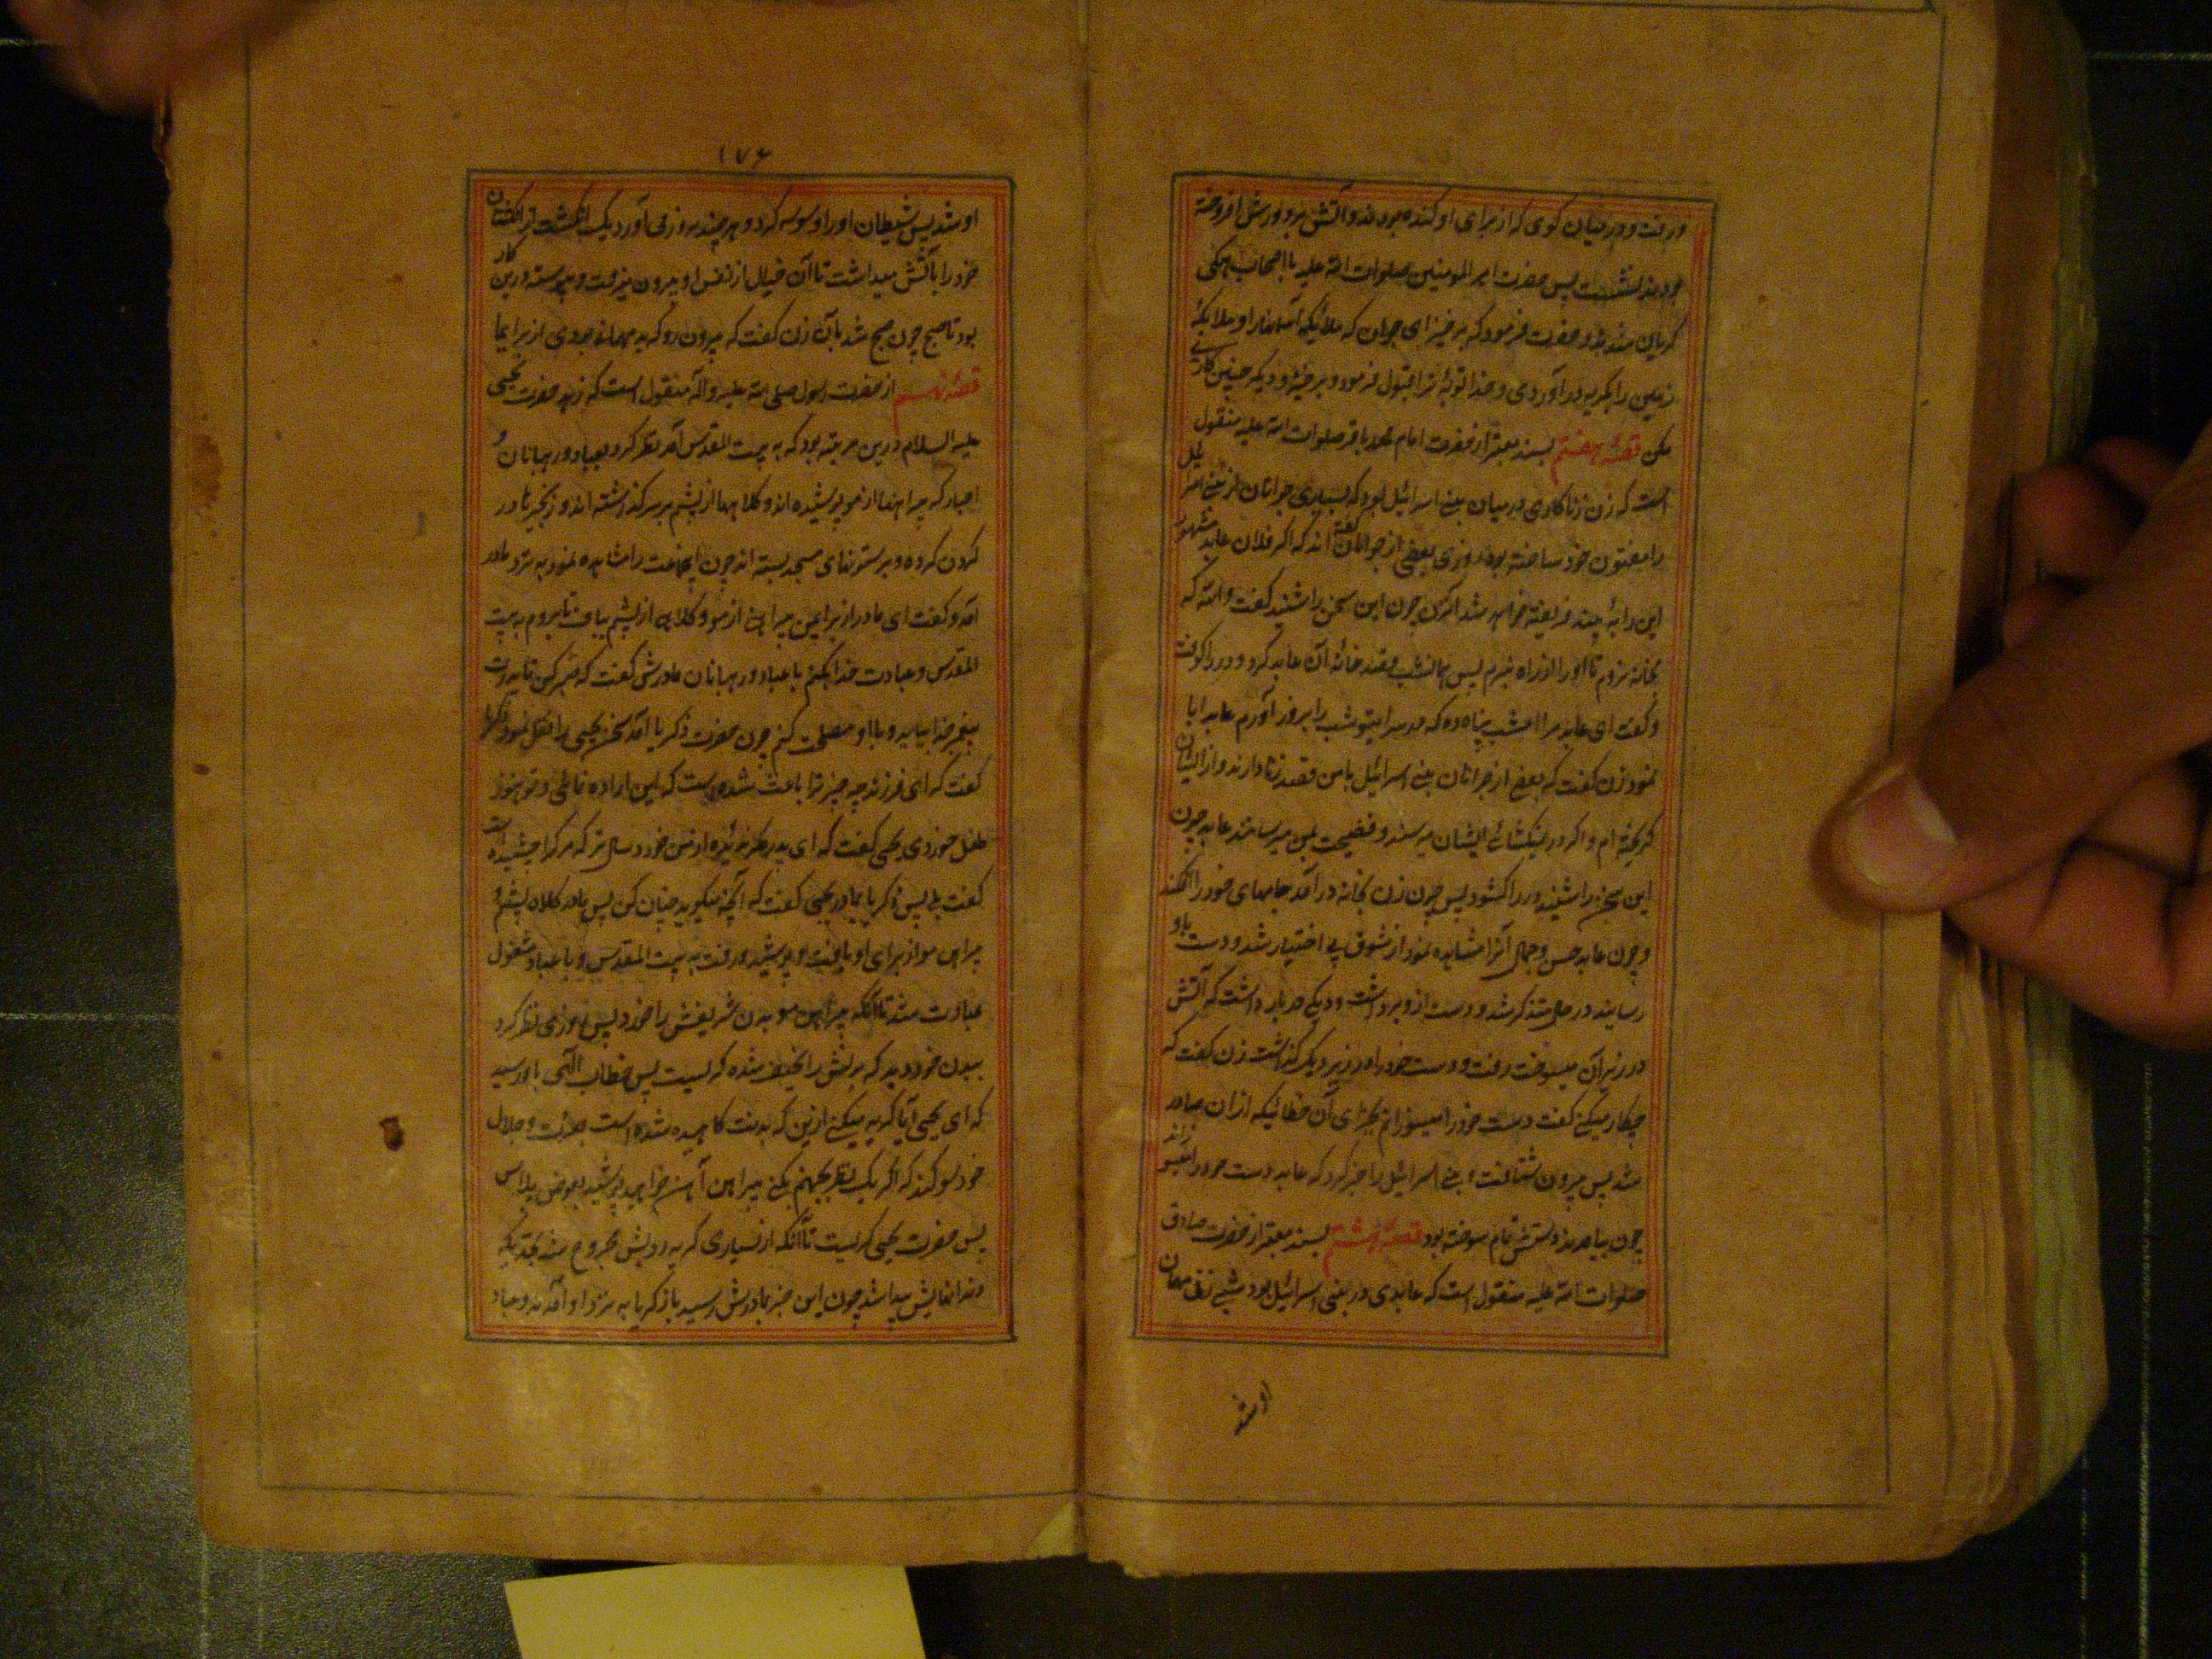 و رفت و در میان کوی که از برای او کنده بودند و آتش بر دورش افروخته
بودند نشست پس حضرت امیر المومنین صلوات الله علیه با اصحاب همکی
کریان شدند و حضرت فرمود که برخیز ای جوان که ملائکه آسمانها را و ملائکهٔ
زمین را بکریه در آوردی و خدا توبهٔ ترا قبول فرمود و برخیز و دیکر چنین کاری
مکن قصهٔ هفتم بسند معتبر از حضرت امام محمد باقر صلوات الله علیه منقول
است که زن زناکاری در میان بنی اسرائیل بود که بسیاری جوانان از بنی اسرائیل
را مفتون خود ساخته بود روزی بعضی از جوانان گفته اند که اکر فلان عابد مشهور
این را به بیند فریفته خواهد شد انزن چون این سخن را شنید کفت والله که
بخانه نروم تا او را از راه نبرم پس همانشب قصد خانهٔ آن عابد کرد و در را کوفت
و کفت ای عابد مرا امشب پناه ده که در سرای تو شب را بروز آورم عابد ابا
نمود زن کفت که بعضی از جوانان بنی اسرائیل با من قصد زنا دارند و از ایشان
کریخته ام و اکر در نمیکشائی ایشان میرسند و فضیحت بمن میرسانند عابد چون
این سخن را شنید در را کشود پس چون زن بخانه در آمد جامهای خود را افکند
و چون عابد حسن و جمال آنرا مشاهده نمود از شوق بی اختیار شد و دست باو
رسانید در حال متذکر شد و دست ازو برداشت و دیکی در بار داشت که آتش
در زیر آن میسوخت رفت و دست خود را در زیر دیک کذاشت زن کفت که
چکار میکنی کفت دست خود را میسوزانم بجزای آن خطائیکه از ان صادر
شد پس بیرون شتافت و بنی اسرائیل را خبر کرد که عابد دست خود را میسوزاند
چون بیامدند دستش تمام سوخته بود قصهٔ هشتم بسند معتبر از حضرت صادق
صلوات الله علیه منقول است که عابدی در بنی اسرائیل بود شبی زنی مهمان
او شد
۱۷۶
او شد پس شیطان او را وسوسه کرد و هر چند به و زمی آورد یک انکشت از انکشتان
خود را بآتش میداشت تا آن خیال از نفس او بیرون میرفت و پیوسته درین کار
بود تا صبح چون صبح شد بآن زن کفت که بیرون رو که بد مهمانی بودی از برای ما
قصهٔ نهم از حضرت رسول صلی الله علیه و آله منقول است که زهد حضرت یحیی
علیه السلام درین مرتبه بود که به بیت المقدس آمد نظر کرد بعباد و رهبانان و
احبار که پیراهنها از مو پوشیده اند و کلاهها از پشم بر سر کذاشته اند و زنجیرها در
کردن کرده و بر ستونهای مسجد بسته اند چون اینجماعت را مشاهده نمود به نزد مادر
آمد و کفت ای مادر از برای من پیراهنی از مو و کلاهی از پشم بباف تا بروم به بیت
المقدس و عبادت خدا بکنم با عباد و رهبانان مادرش کفت که صبر کن تا پدرت
پیغمبر خدا بیاید و با او مصلحت کنم چون حضرت زکریا آمد سخن یحیی را نقل نمود زکریا
کفت که ای فرزند چه چیز ترا باعث شده است که این اراده نمائی و تو هنوز
طفل خوردی یحیی کفت که ای پدر مکر ندیدهٔ از من خوردسال تر که مرک را چشیده است
کفت بلی پس زکریا بمادر یحیی کفت که آنچه میکوید چنان کن پس مادر کلاه پشم و
پیراهن مو از برای او بافت و پوشید و رفت به بیت المقدس و با عباد مشغول
عبادت شد تا آنکه پیراهن مو بدن شریفش را خورد پس روزی نظر کرد
ببدن خود دید که بدنش را نحیف شده کریست پس خطاب الهی باو رسید
که ای یحیی آیا کریه میکنی ازین که بدنت کاهیده شده است بعزت و جلال
خود سوکند که اکر یک نظر بجهنم بکنی پیراهن آهن خواهی پوشید بعوض پلاس
پس حضرت یحیی کریست تا آنکه از بسیاری کریه رویش مجروح شد بحدیکه
دندانهایش پیدا شد چون این خبر بمادرش رسید با زکریا به نزد او آمدند و عباد